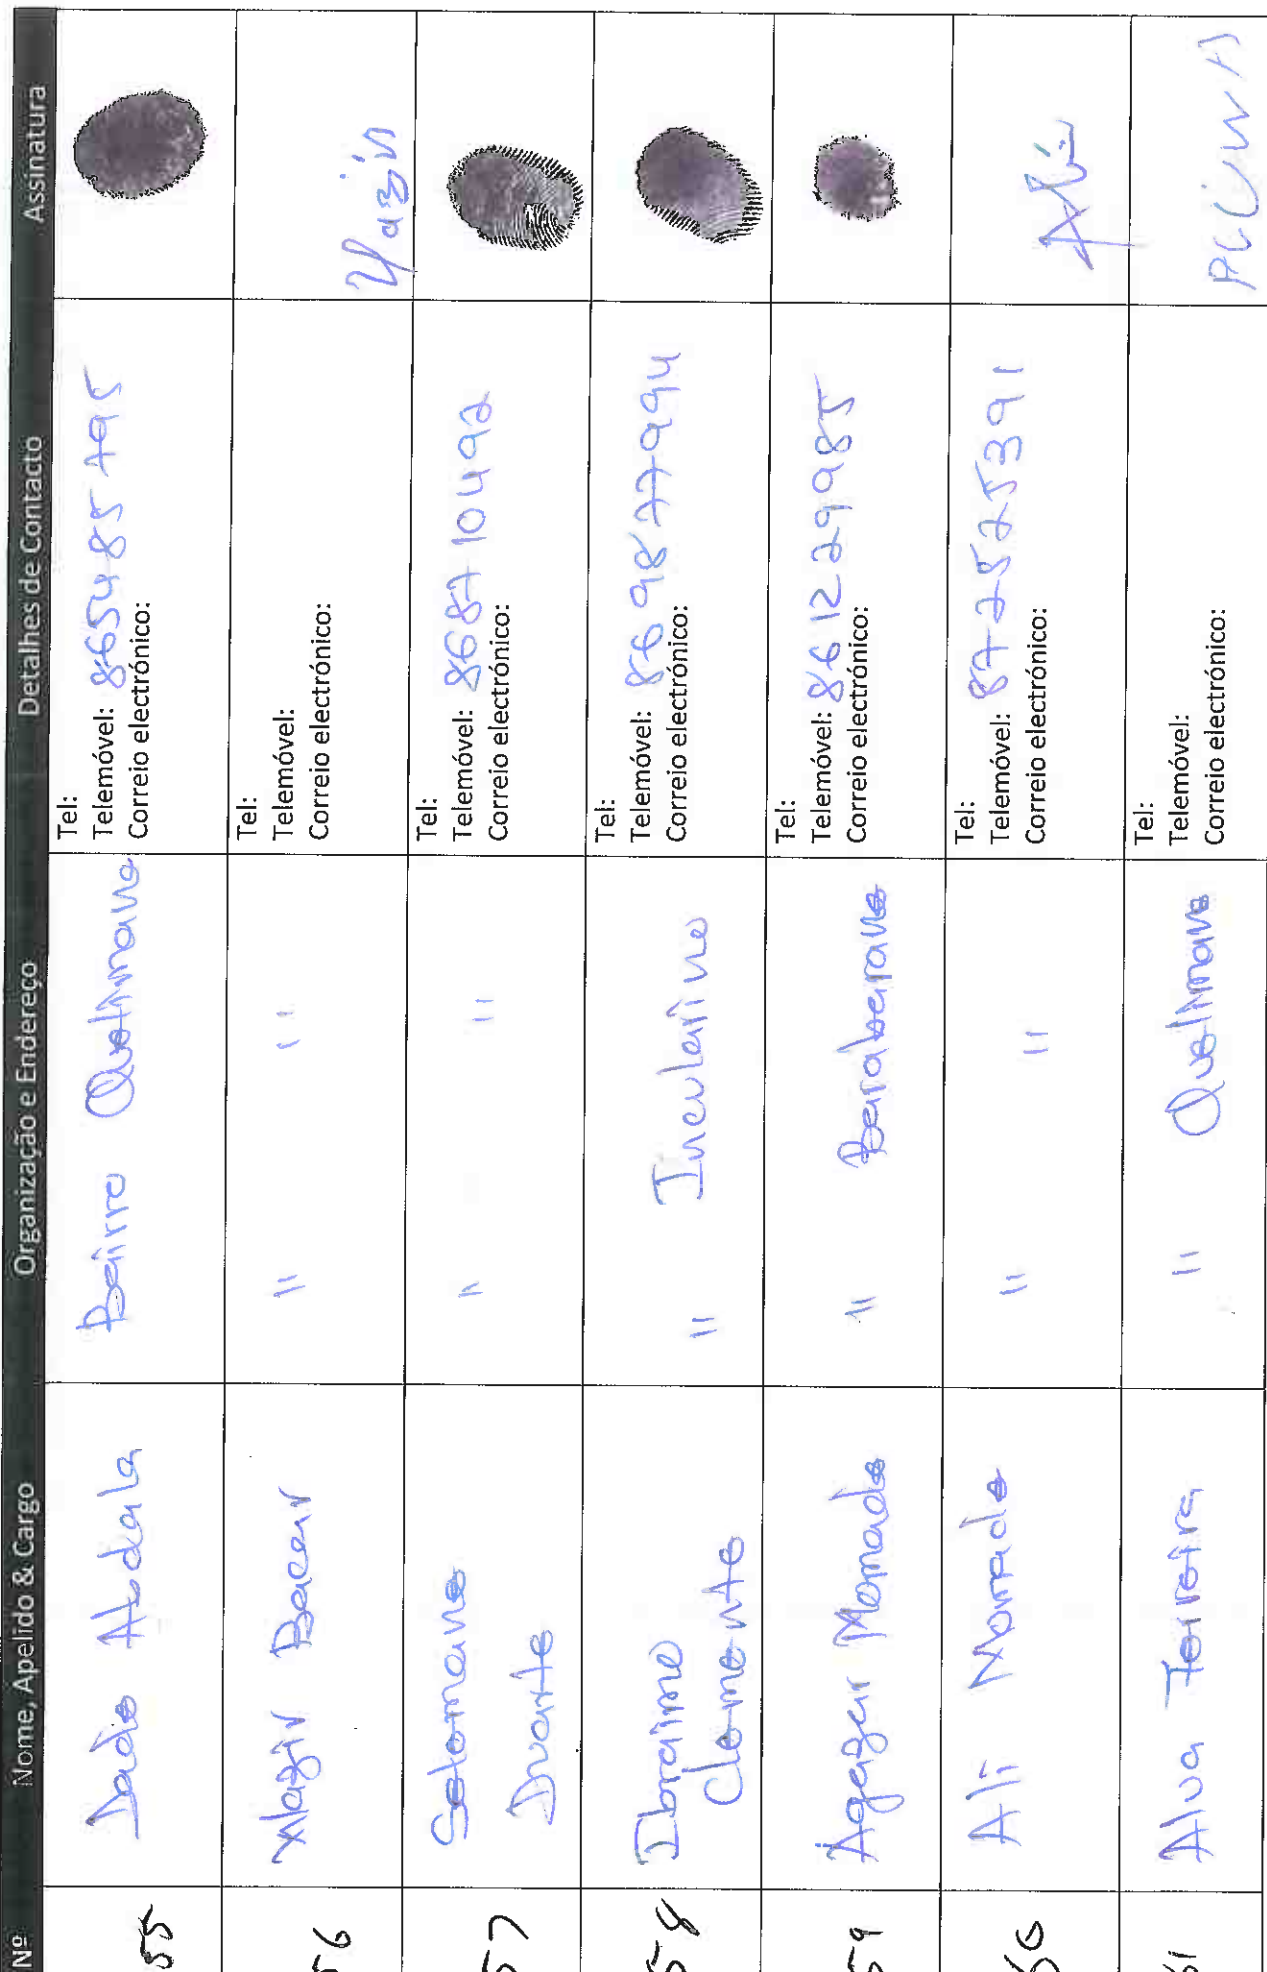 Nº Nome, Apelido & Cargo Organização e Endereço Detalhes de Contacto Assinatura
55 Dade Abdala Bairro Quelimane
Tel:
Telemóvel: 865485795
Correio electrónico:
56 Bacar " "
Tel:
Telemóvel:
Correio electrónico:
Yazir
57 Selemane Duarte " "
Tel:
Telemóvel: 868710492
Correio electrónico:
58 Ibraimo Clemente " Inculavino
Tel:
Telemóvel: 869877994
Correio electrónico:
59 Agazar Momade "
Tel:
Telemóvel: 861229985
Correio electrónico:
60 Ali Momade " "
Tel:
Telemóvel: 872525391
Correio electrónico:
Ali
61 Alva Ferreira " Quelimane
Tel:
Telemóvel:
Correio electrónico: